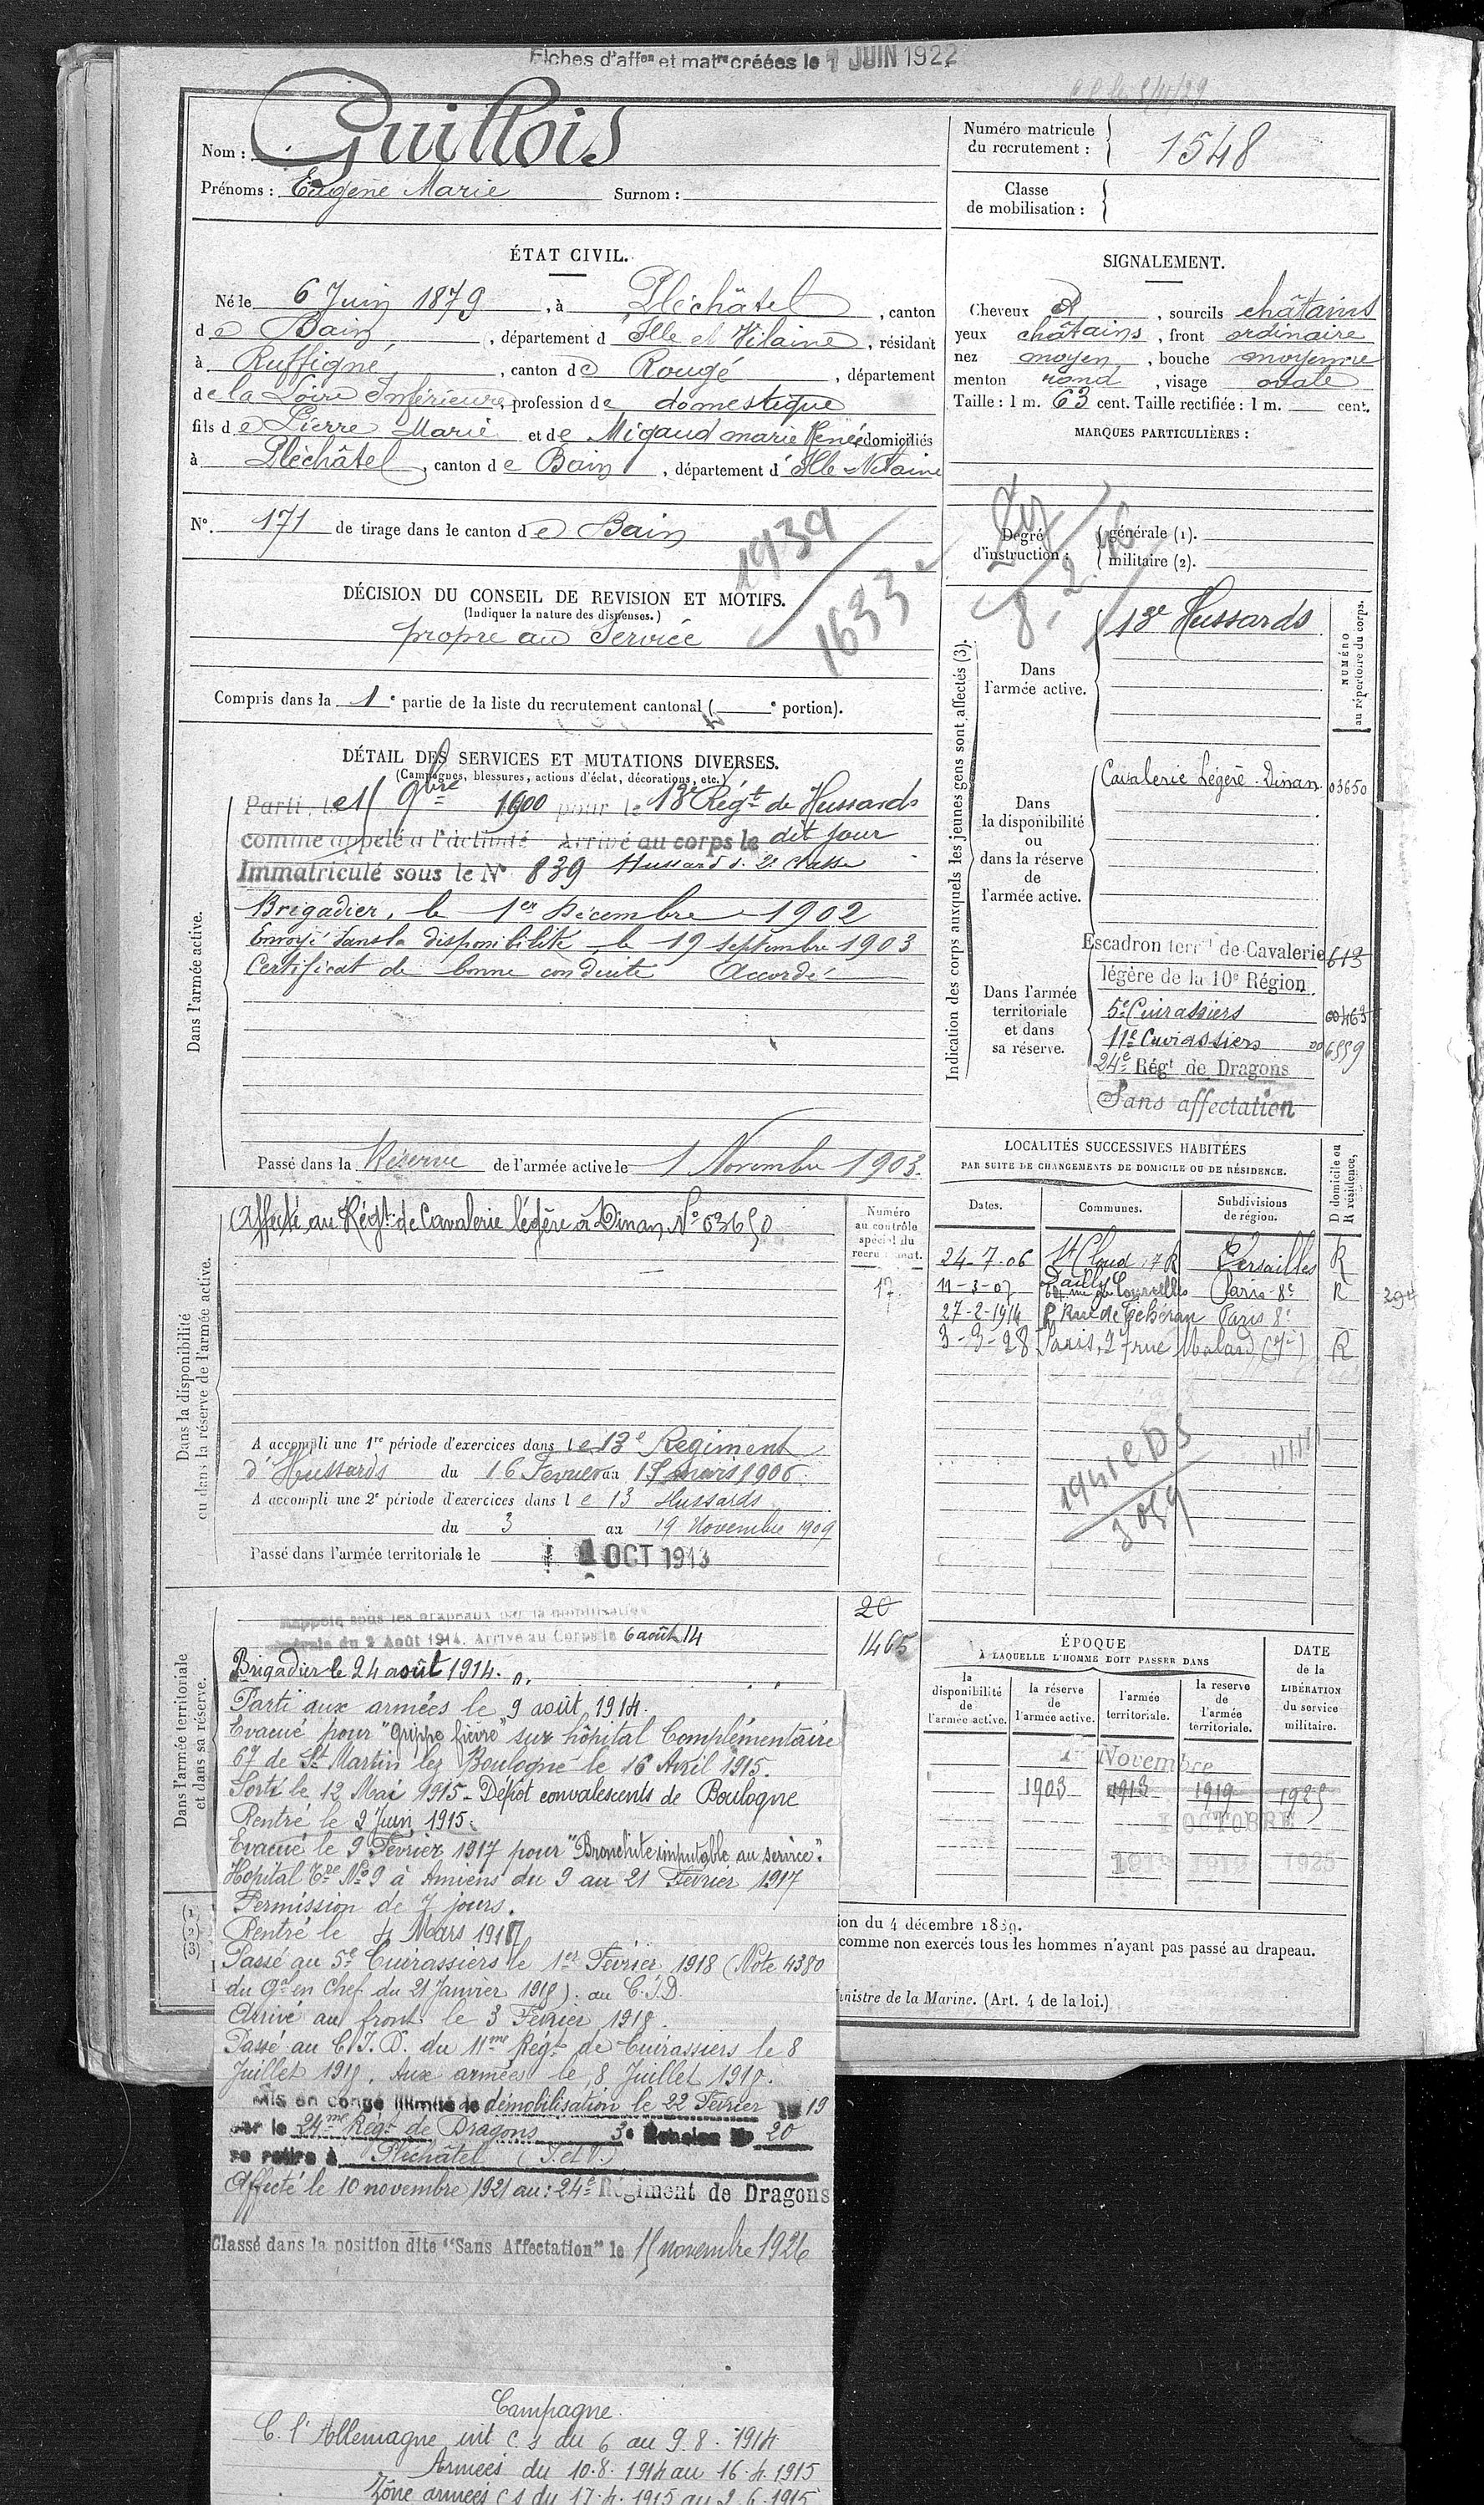 Fiches d'affon et matre créées le 1 JUIN 1922
Nom : Guillois
Prénoms : Eugène Marie Surnom :
Numéro matricule
du recrutement : 1548
Classe
de mobilisation :
ÉTAT CIVIL.
Né le 6 Juin 1879, à Pléchâtel, canton
de Bain, département d'Ille et Vilaine, résidant
à Ruffigné, canton de Rougé, département
de la Loire Inférieure, profession de domestique
fils de Pierre Marie et de Migaud marie Renée domiciliés
à Pléchâtel, canton de Bain, département d'Ille Vilaine
N° 171 de tirage dans le canton de Bain
1939
1633
SIGNALEMENT.
Cheveux et, sourcils châtains
yeux châtains, front ordinaire
nez moyen, bouche moyenne
menton rond, visage ovale
Taille : 1 m. 63 cent. Taille rectifiée : 1 m. cent.
MARQUES PARTICULIÈRES :
Degré
d'instruction :
générale (1).
militaire (2).
DÉCISION DU CONSEIL DE REVISION ET MOTIFS.
(Indiquer la nature des dispenses.)
propre au Service
Compris dans la 1e partie de la liste du recrutement cantonal ( e portion).
DÉTAIL DES SERVICES ET MUTATIONS DIVERSES.
(Campagnes, blessures, actions d'éclat, décorations, etc.)
Dans l'armée active.
Parti le 15 9bre 1900 pour le 13e Régt de Hussards
comme appelé à l'activité Arrivé au corps le dit jour
Immatriculé sous le N° 839 Hussard d. 2e classe
Brigadier, le 1er Décembre 1902
Envoyé dans la disponibilité le 19 septembre 1903
Certificat de bonne conduite Accordé
Passé dans la Réserve de l'armée active le 1 Novembre 1903.
Indication des corps auxquels les jeunes gens sont affectés (3).
NUMÉRO
au répertoire du corps.
Dans
l'armée active.
13e Hussards
Dans
la disponibilité
ou
dans la réserve
de
l'armée active.
Cavalerie Légère - Dinan 03650
Dans l'armée
territoriale
et dans
sa réserve.
Escadron terral de Cavalerie 613
légère de la 10e Région
5e Cuirassiers 00463
11e Cuirassiers 006559
24e Régt de Dragons
Sans affectation
Dans la disponibilité
ou dans la réserve de l'armée active.
Affecté au Régt de Cavalerie légère à Dinan, N° 03650
Numéro
au contrôle
spécial du
recrutement.
17
A accompli une 1re période d'exercices dans le 13e Régiment
d'Hussards du 16 Février au 15 mars 1906
A accompli une 2e période d'exercices dans le 13 Hussards
du 3 au 19 Novembre 1909
Passé dans l'armée territoriale le 1 OCT 1913
LOCALITÉS SUCCESSIVES HABITÉES
PAR SUITE DE CHANGEMENTS DE DOMICILE OU DE RÉSIDENCE.
D domicile ou
R résidence,
Dates. Communes. Subdivisions
de région.
24-7-06 St Cloud Versailles R
11-3-07 64 rue de Courcelles Paris-8e R
27-2-1914 Rue de Téhéran Paris 8e
3-9-28 Paris, 27 rue Malar (7e) R
294
Dans l'armée territoriale
et dans sa réserve.
Rappelé sous les drapeaux par la mobilisation
générale du 2 Août 1914. Arrivé au Corps le 6 août 14
20
1465
Brigadier le 24 août 1914.
Parti aux armées le 9 août 1914.
Evacué pour "Grippe fièvre" sur hôpital Complémentaire
67 de St Martin lez Boulogne le 16 Avril 1915.
Sorti le 12 Mai 1915 - Dépôt convalescents de Boulogne
Rentré le 2 Juin 1915.
Evacué le 9 Février 1917 pour "Bronchite imputable au service".
Hopital Tre N° 9 à Amiens du 9 au 21 Février 1917
Permission de 7 jours.
Rentré le 4 Mars 1917
Passé au 5e Cuirassiers le 1er Février 1918 (Note 4380
du Gal en Chef du 21 Janvier 1918). au C.I.D.
Arrivé au front le 3 Février 1918.
Passé au C.I.D. du 11me Régt de Cuirassiers le 8
Juillet 1918. Aux armées le 8 Juillet 1918.
Mis en congé illimité de démobilisation le 22 Février 1919
par le 24me Régt de Dragons 3e Echelon N° 20
se retire à Pléchâtel (I. et V.)
Affecté le 10 novembre 1921 au : 24e Régiment de Dragons
Classé dans la position dite "Sans Affectation" le 15 novembre 1926
ÉPOQUE
À LAQUELLE L'HOMME DOIT PASSER DANS
DATE
de la
LIBÉRATION
du service
militaire.
la
disponibilité
de
l'armée active.
la réserve
de
l'armée active.
l'armée
territoriale.
la reserve
de
l'armée
territoriale.
1er Novembre
1903 1913 1919 1925
1 OCTOBRE
1913 1919 1925
(1)
(2)
(3)
ion du 4 décembre 1889.
comme non exercés tous les hommes n'ayant pas passé au drapeau.
inistre de la Marine. (Art. 4 de la loi.)
Campagne.
C. l'Allemagne int c. s du 6 au 9.8.1914
Armées du 10.8.1914 au 16.4.1915
Zône armées c s du 17.4.1915 au 2.6.1915